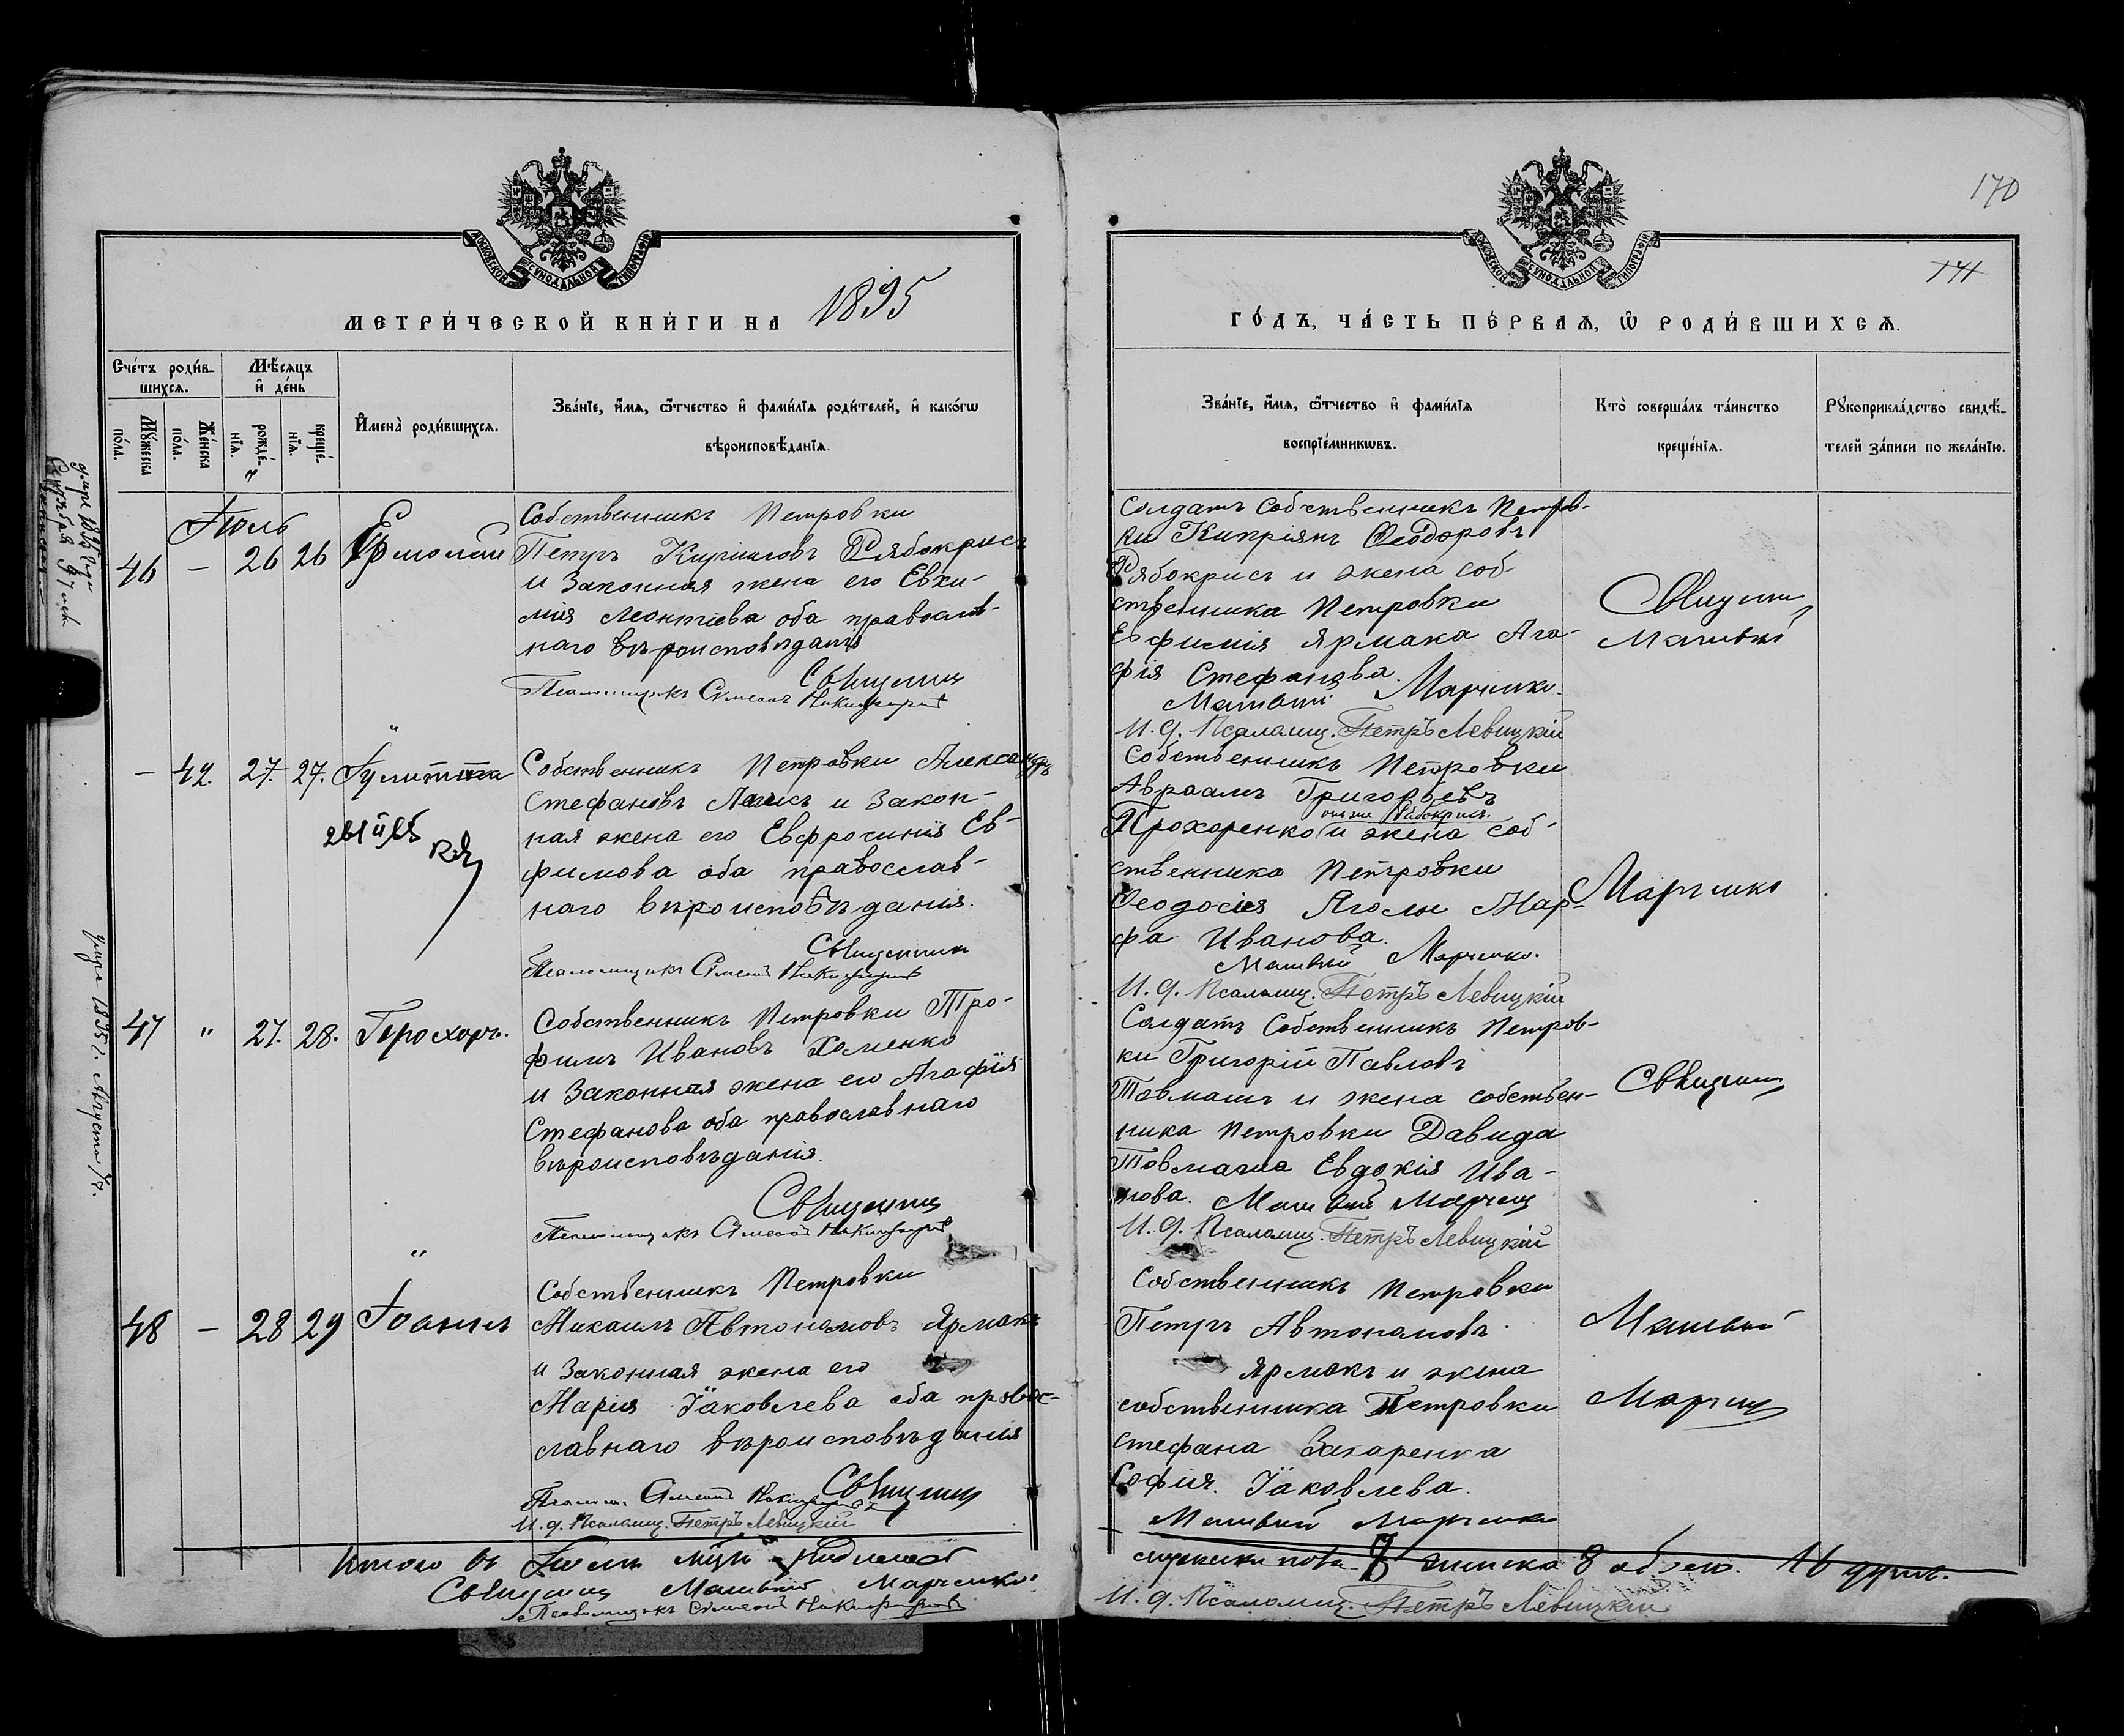 170
171
МОСКОВСКОЙ СѴНОДАЛЬНОЙ ТИПОГРАФІИ
МОСКОВСКОЙ СѴНОДАЛЬНОЙ ТИПОГРАФІИ
МЕТРИ́ЧЕСКОЙ КНИ́ГИ НА 1895
ГО́ДЪ, ЧА́СТЬ ПЕ́РВАѦ, Ѡ РОДИ́ВШИХСѦ.
Сче́тъ роди́в-
шихсѧ.
Мꙋ́жеска
по́ла.
Же́нска
по́ла.
Мѣ́сѧцъ
и҆ де́нь
рожде́-
нїѧ.
креще́-
нїѧ.
И҆мена̀ роди́вшихсѧ.
Зва́нїе, и҆́мѧ, ѻ҆́тчество и҆ фами́лїѧ роди́телей, и҆ како́гѡ
вѣроисповѣ́данїѧ.
Зва́нїе, и҆́мѧ, ѻ҆́тчество и҆ фами́лїѧ
воспрїе́мникѡвъ.
Кто̀ соверша́лъ та́инство
креще́нїѧ.
Рꙋкоприкла́дство свидѣ́-
телей за́писи по жела́нїю.
Іюль
46 — 26 26 Ермолай
Собственникъ Петровки
Петръ Кириловъ Рябокрисъ
и законная жена его Евхи-
мія Леонтіева оба православ-
наго вѣроисповѣданія
Священник
Псаломщикъ Симеонъ
Солдатъ Собственникъ Петров-
ки Кипріянъ Ѳеодоровъ
Рябокрисъ и жена соб-
ственника Петровки
Евфимія Ярмака Ага-
фія Стефанова.
Матвѣй Марченко.
И. д. Псаломщ. Петръ Левицкій
Священник
Матвѣй
— 42. 27. 27. Іулитта
Собственникъ Петровки Александръ
Стефановъ и закон-
ная жена его Евфросинія Ев-
фимова оба православ-
наго вѣроисповѣданія.
Священник
Псаломщикъ Симеонъ
Собственникъ Петровки
Авраамъ Григорьевъ
онъ же Рябокрисъ.
Прохоренко и жена соб-
ственника Петровки
Ѳеодосія Яголы Мар-
фа Иванова.
Матвѣй Марченко.
И. д. Псаломщ. Петръ Левицкій
Марченко
47 " 27. 28. Прохоръ.
Собственникъ Петровки Тро-
фимъ Ивановъ Хоменко
и законная жена его Агафія
Стефанова оба православнаго
вѣроисповѣданія.
Священник
Псаломщикъ Симеонъ
Солдатъ Собственникъ Петров-
ки Григорій Павловъ
Товмачъ и жена собствен-
ника Петровки Давида
Товмача Евдокія Ива-
нова. Матвѣй Марченко
И. д. Псаломщ. Петръ Левицкій
Священник
48 — 28 29 Іоаннъ
Собственникъ Петровки
Михаилъ Автономовъ Ярмакъ
и законная жена его
Марія Іаковлева оба правос-
лавнаго вѣроисповѣданія
Священник
Псалом. Симеонъ
И. д. Псаломщ. Петръ Левицкій
Собственникъ Петровки
Петръ Автономовъ
Ярмакъ и жена
собственника Петровки
Стефана Захаренка
Софія Іаковлева.
Матвѣй Марченко
Матвѣй
Марченко
Итого въ Іюлѣ мѣсяцѣ родилось
Священник Матвѣй Марченко.
Псаломщикъ Симеонъ
мужеска пола 8 женска 8 обоего. 16 душъ.
И. д. Псаломщ. Петръ Левицкій